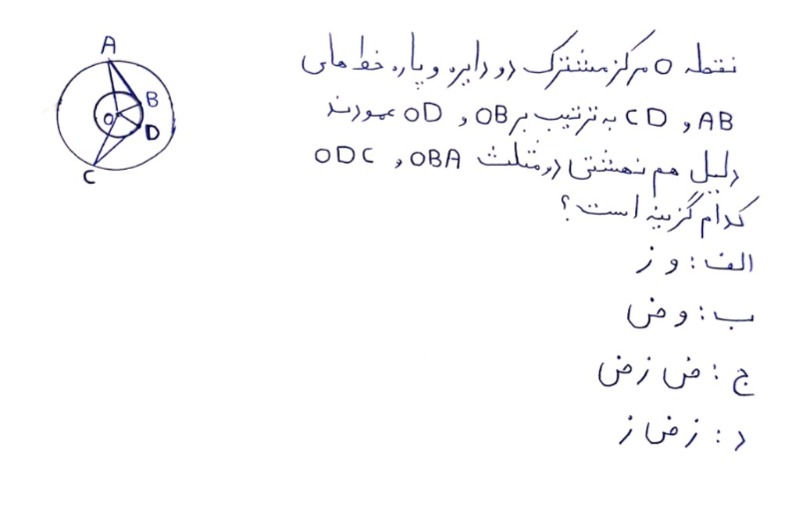 نقطه O مرکز مشترک دو دایره و پاره خط های
AB و CD به ترتیب بر OB و OD عمودند
دلیل هم نهشتی دو مثلث OBA و ODC
کدام گزینه است؟
الف: و ز
ب: و ض
ج: ض ز ض
د: ز ض ز
A
B
O
D
C